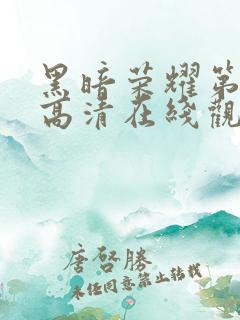 黑暗荣耀第
高清在线觀
唐啓勝
未经同意禁止转载